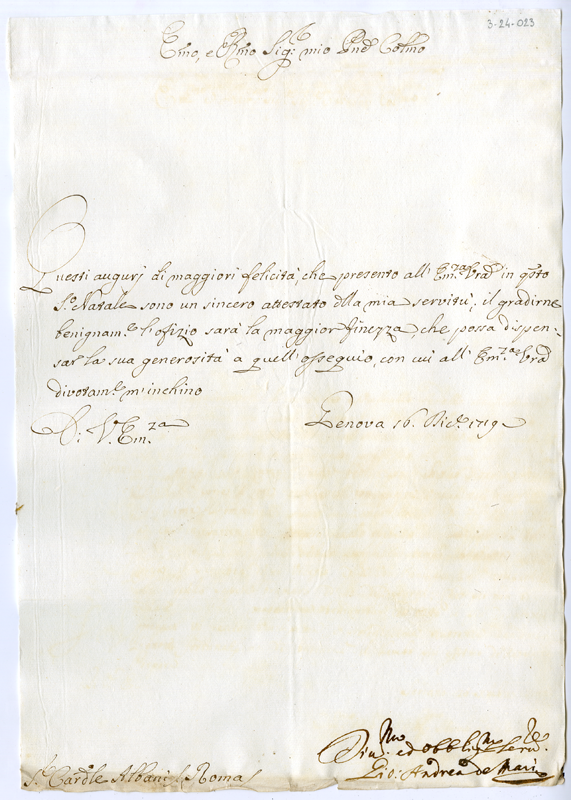 3-24-023
Emo, e Rmo Sig.r mio Pne Colmo
Questi augurj di maggiori felicità, che presento all' Em.za Vra in qsto
S.o Natale sono un sincero attestato dlla mia servitù; il gradirne
benignam.e l'ofizio sarà la maggior finezza, che possa dispen-
sar la sua generosità a quell' ossequio, con cui all' Em.za Vra
divotam.e m'inchino
Di V. Em.za
Genova 16. Dic.e 1719
Diu.mo ed Obblig.mo Seru.re
Gio: Andrea de Mari
S.r Card.le Albani Roma